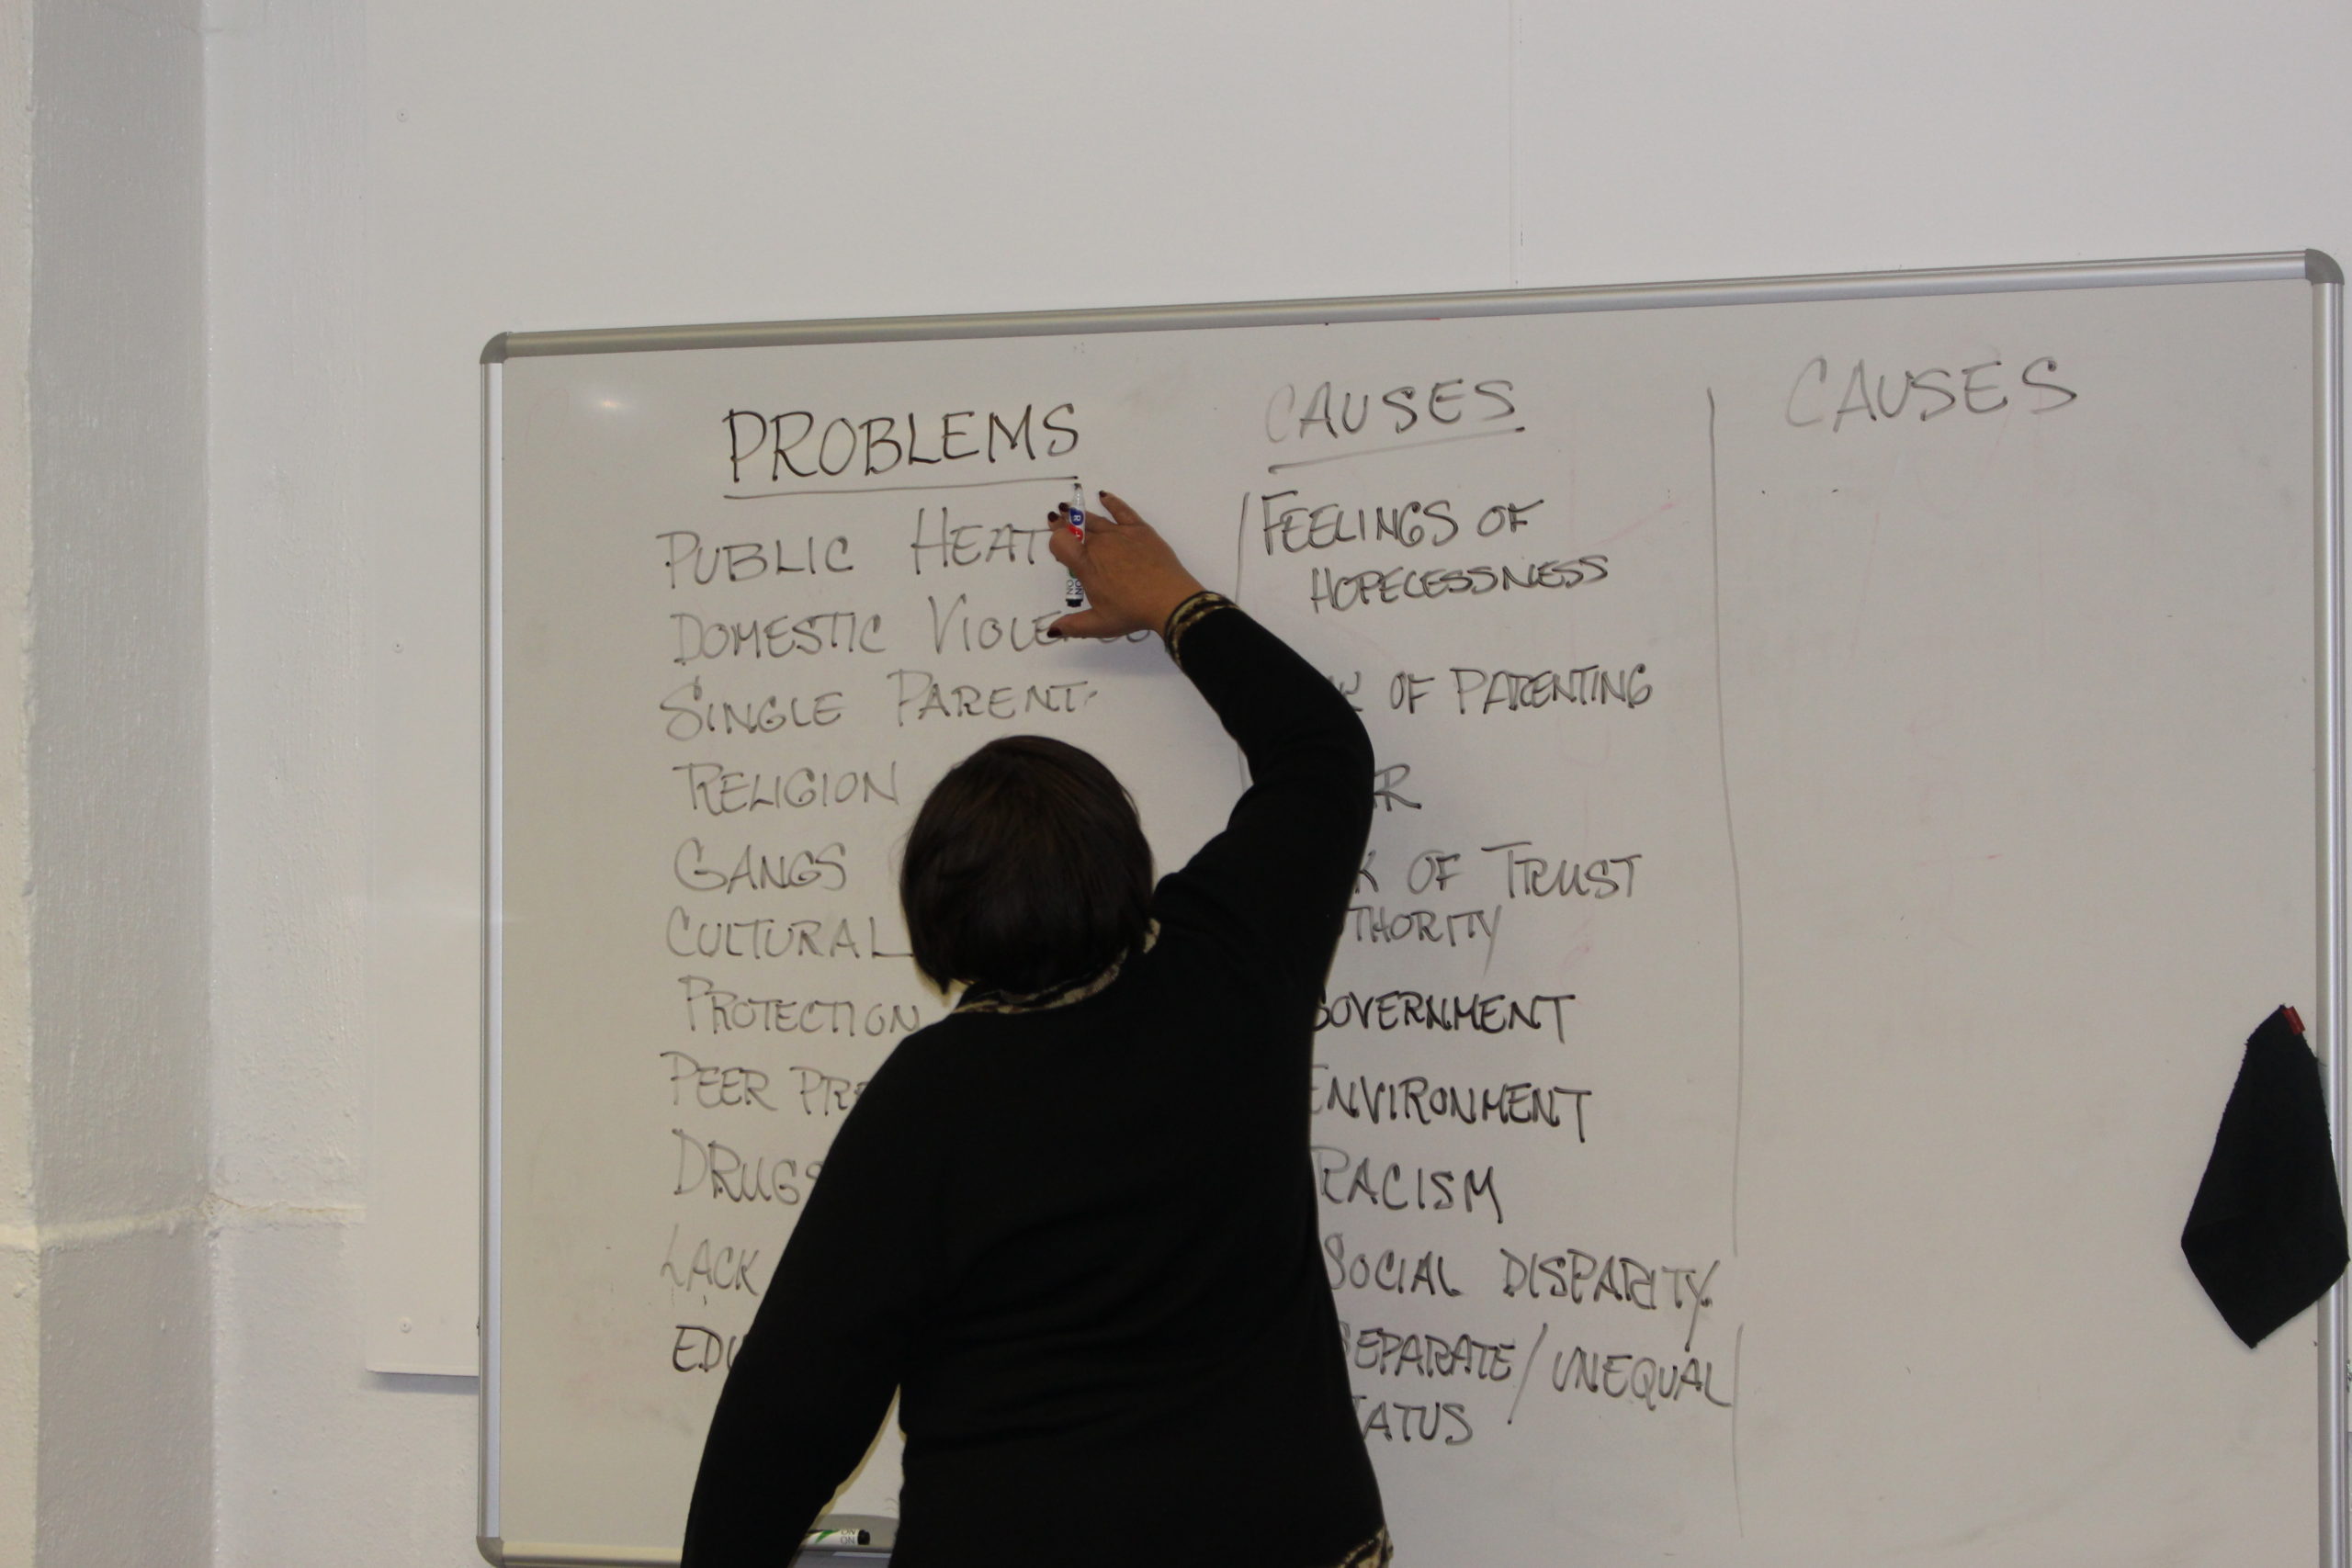 PROBLEMS
PUBLIC HEAT
DOMESTIC
SINGLE PARENT
RELIGION
GANGS
CULTURAL
PROTECTION
PEER
DRUGS
LACK
CAUSES
FEELINGS OF
HOPELESSNESS
OF PARENTING
OF TRUST
GOVERNMENT
ENVIRONMENT
RACISM
SOCIAL DISPARITY
SEPARATE/UNEQUAL
CAUSES